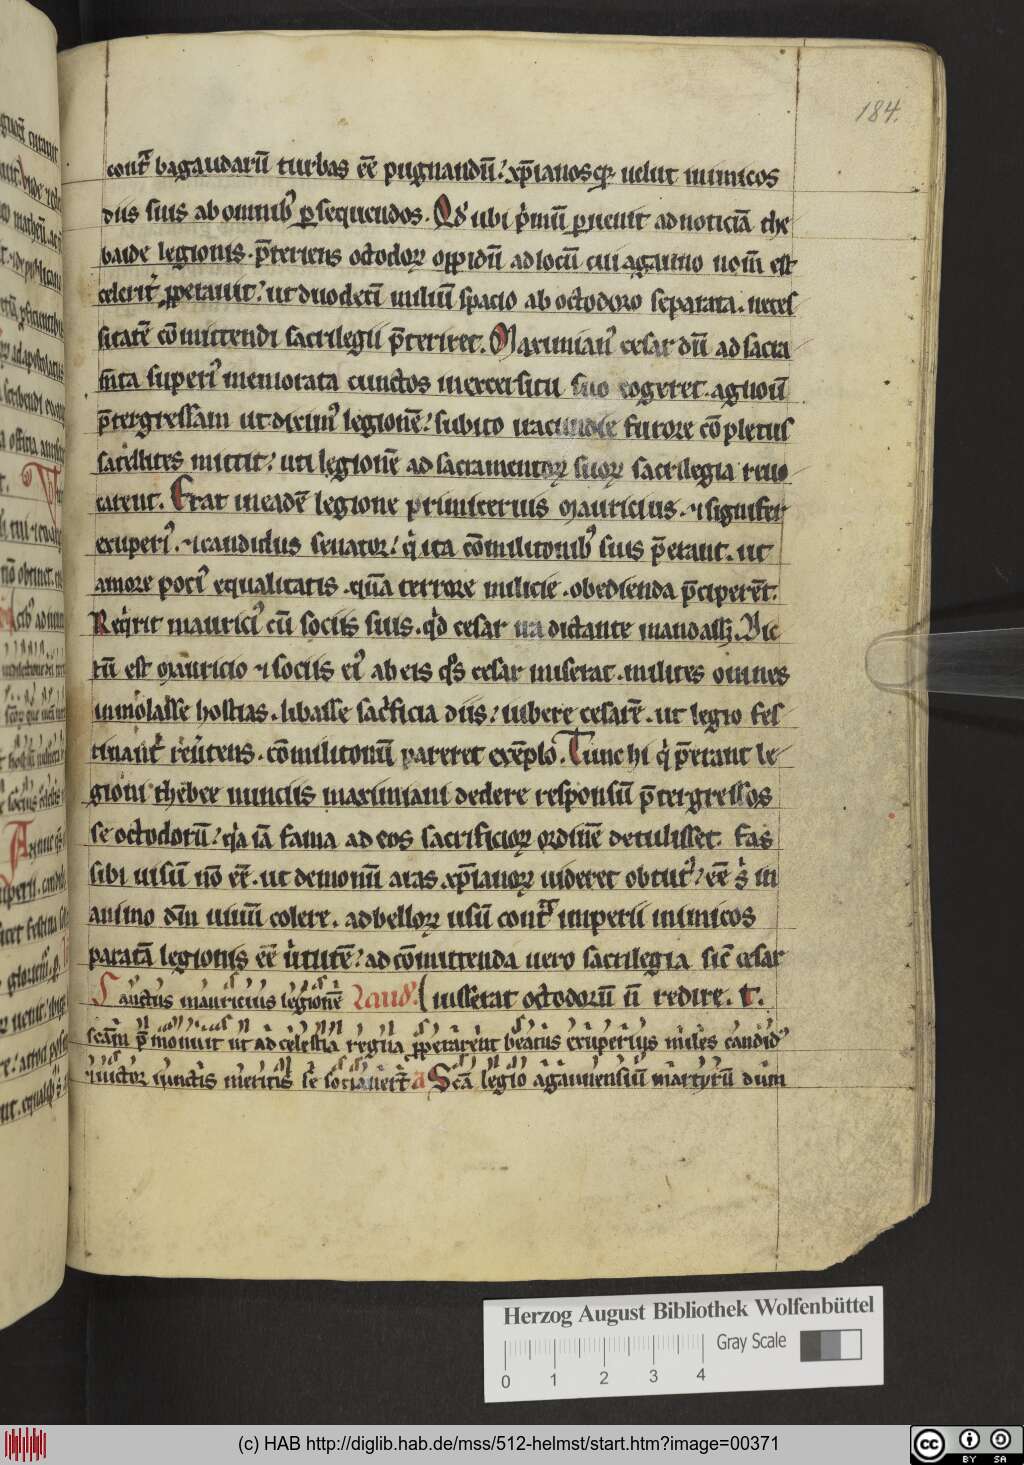 184.
contᷓ bagaudarū turbas eē pugnandū. xp̄ianosq; uelut inimicos
diis suis ab omnibꝰ ꝑsequendos. Qd' ubi p̓mū ꝑuenit ad noticiā the
baide legionis. p̄teriens octodoꝝ oppidū ad locū cui agauno nom̄ est
celerit̓ ꝓperauit. ut duodeci milium spacio ab octodoro separata. neces
sitatē cōmittendi sacrilegii p̄teriret. Maximianꝰ cesar dū ad sacra
m̄ta superiꝰ memorata cunctos in exercitu suo cogeret. agnouit
p̄tergressam ut diximꝰ legionē. subito iracundie furore cōpletus
satellites mittit. uti legionē ad sacramentoꝝ suoꝝ sacrilegia reuo
carent. Erat in eadē legione primicerius mauricius. ⁊ signifer
exuperiꝰ. ⁊ candidus senator. q̓ ita cōmilitonibꝰ suis p̄erant. ut
amore potiꝰ equalitatis. quā terrore milicie. obedienda p̄ciperēt.
Reqrit mauriciꝰ cū sociis suis. qd̓ cesar ira dictante mandass&. Dic
tū est mauricio ⁊ sociis eiꝰ ab eis qͦs cesar miserat. milites omnes
inmolasse hostias. libasse sacͥficia diis. iubere cesarē. ut legio fes
tinant̓ reuͥtens. cōmilitonū pareret exēplo. Tunc hi q̓ p̄erant le
gioni thebee nunciis maximiani dedere responsū p̄tergressos
se octodorū. qͥa iā fama ad eos sacrificioꝝ ordinē detulisset. fas
sibi uisū nō eē. ut demonū aras xp̄ianoꝝ uideret obtutꝰ. eē s̓ in
animo dm̄ uiuū colere. ad belloꝝ usū contᷓ imperii inimicos
paratā legionis eē uͥtutē. ad cōmittenda uero sacrilegia sic̄ cesar
Sanctus mauricius legionē laud'. iusserat octodorū n̄ redire. t.
scām p̄monuit ut ad celestia regna ꝓperarent beatus exuperius miles candidꝰ
⁊ uictor iunctis meritis se sociauert̄ a Scā legio agaunensiū martyrū dum
Herzog August Bibliothek Wolfenbüttel
Gray Scale
0 1 2 3 4
(c) HAB http://diglib.hab.de/mss/512-helmst/start.htm?image=00371
cc BY SA